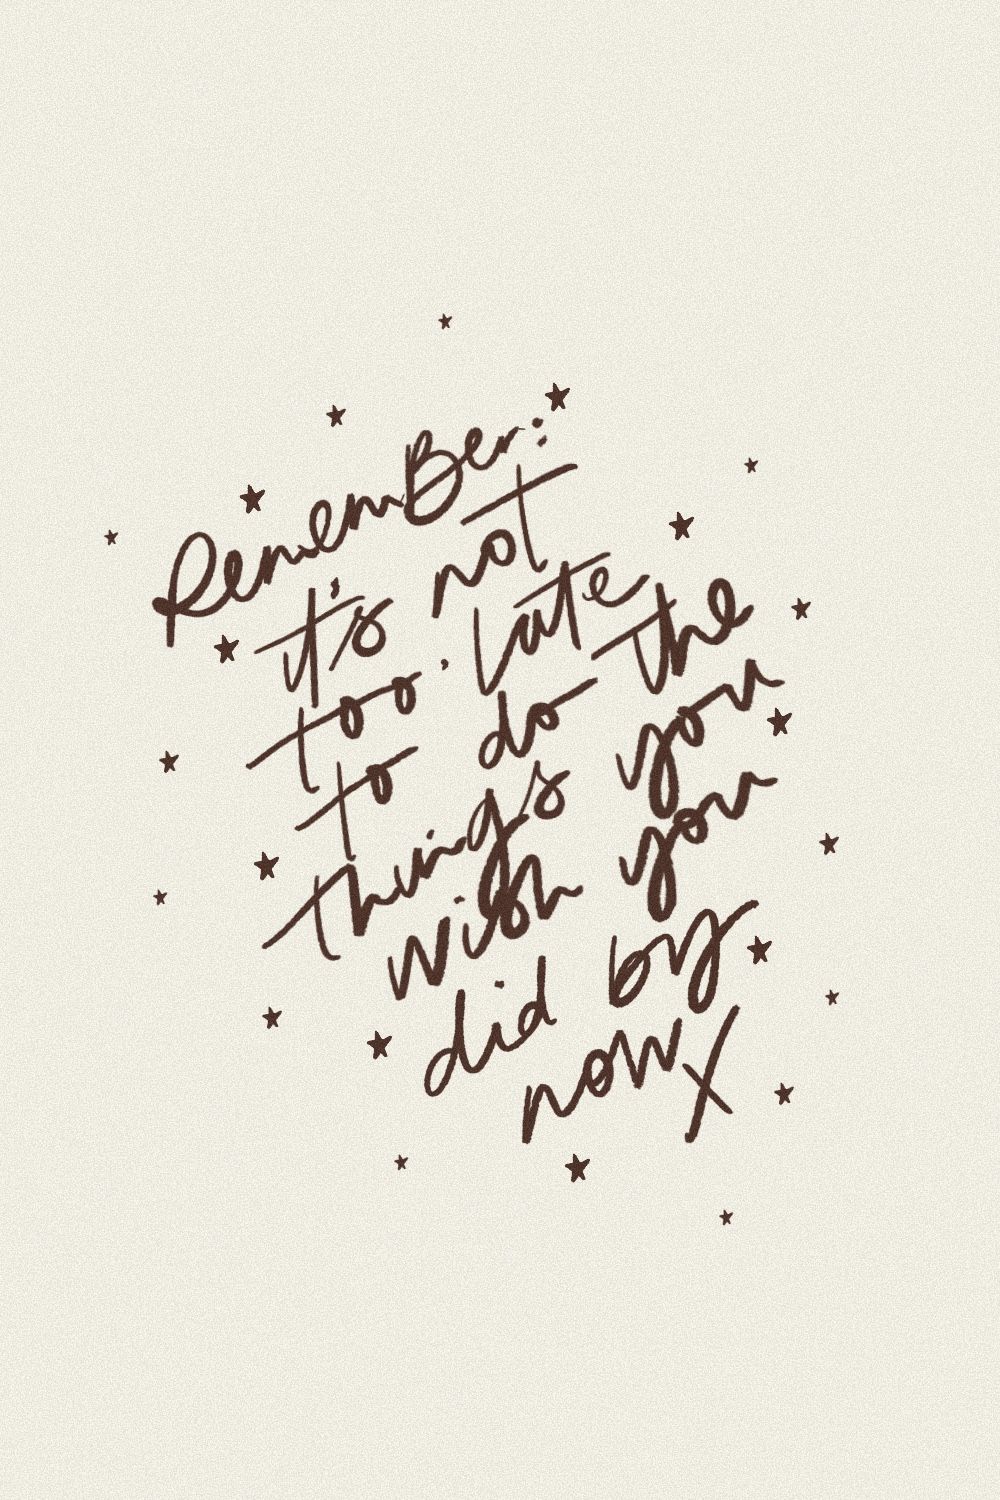 RememBer:
it's not
too late
to do the
things you
wish you
did by
now x